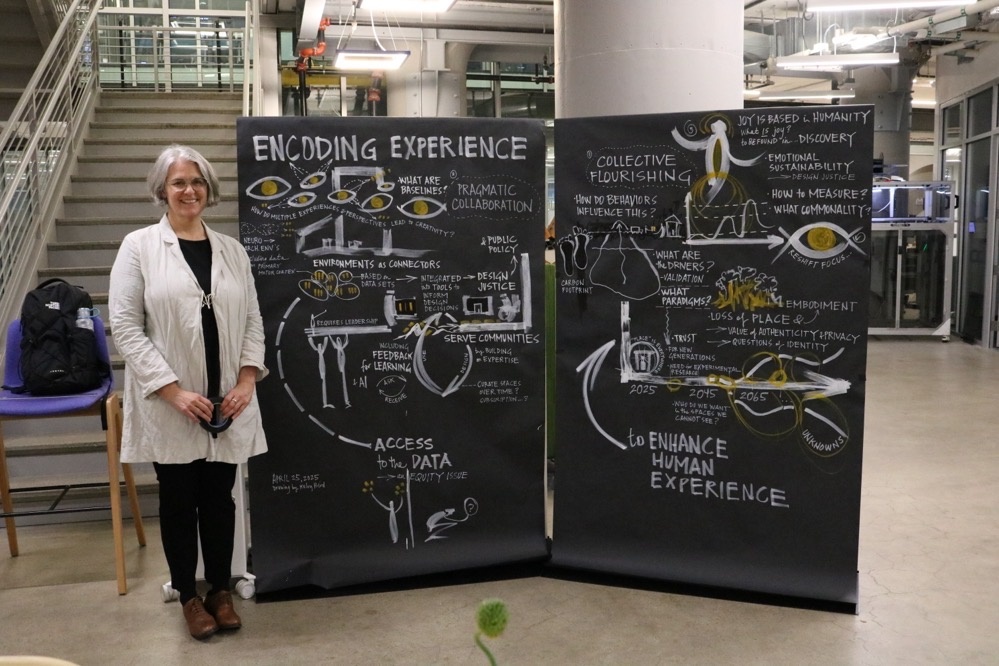 ENCODING EXPERIENCE
WHAT ARE
BASELINES?
PRAGMATIC
COLLABORATION
HOW DO MULTIPLE EXPERIENCES & PERSPECTIVES LEAD TO CREATIVITY?
NEURO
ARCH. ENV'S
PRIMARY
MOTOR CORTEX
& PUBLIC
POLICY
ENVIRONMENTS AS CONNECTORS
BASED on
DATA SETS
INTEGRATED
into TOOLS to
INFORM
DESIGN
DECISIONS
DESIGN
JUSTICE
REQUIRES LEADERSHIP
SERVE COMMUNITIES
by BUILDING
EXPERTISE
INCLUDING
FEEDBACK
for LEARNING
& AI
ASK
RECEIVE
CREATE SPACES
OVER TIME?
CONSUMPTION...?
ACCESS
to the DATA
EQUITY ISSUE
APRIL 25, 2025
Drawing by
?
COLLECTIVE
FLOURISHING
HOW DO BEHAVIORS
INFLUENCE THIS?
CARBON
FOOTPRINT
JOY IS BASED in HUMANITY
What IS joy?
to BE FOUND in... DISCOVERY
EMOTIONAL
SUSTAINABILITY
DESIGN JUSTICE
HOW to MEASURE?
WHAT COMMONALITY?
RESHIFT FOCUS...
WHAT ARE
the DRIVERS?
VALIDATION
WHAT
PARADIGMS?
EMBODIMENT
LOSS of PLACE &
VALUE of AUTHENTICITY & PRIVACY
QUESTIONS of IDENTITY
TRUST
FOR NEW
GENERATIONS
NEED for EXPERIMENTAL
RESEARCH
2025 2045 2065
WHO DO WE WANT
in the SPACES WE
CANNOT SEE?
UNKNOWNS
to ENHANCE
HUMAN
EXPERIENCE